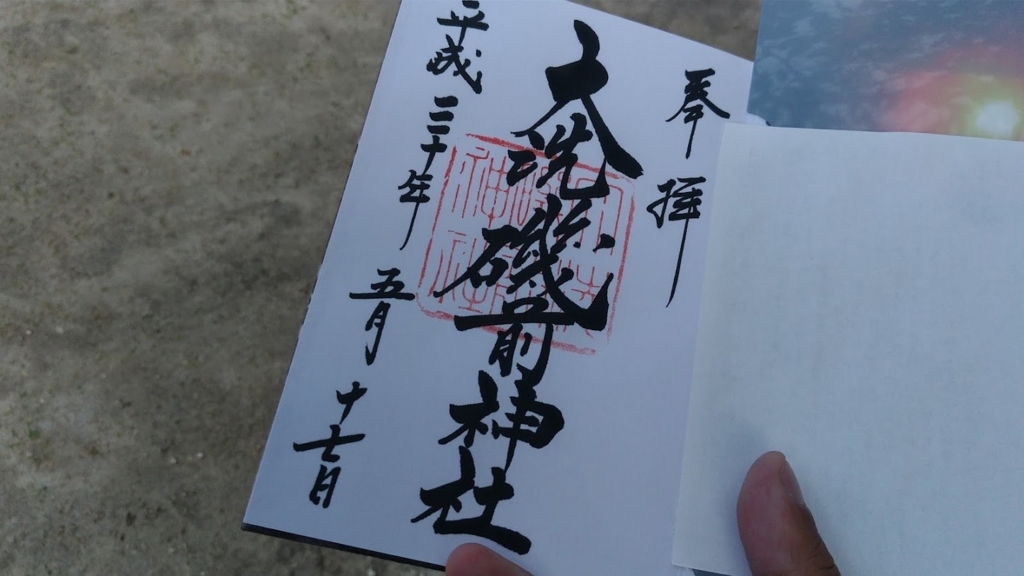 奉拝
大洗磯前神社
平成三十年五月十七日